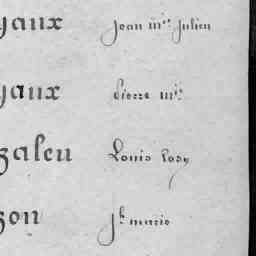 yaux Jean m^ie Julien
yaux Pierre m^ie
zaleu Louis Josp
zon J^h marie